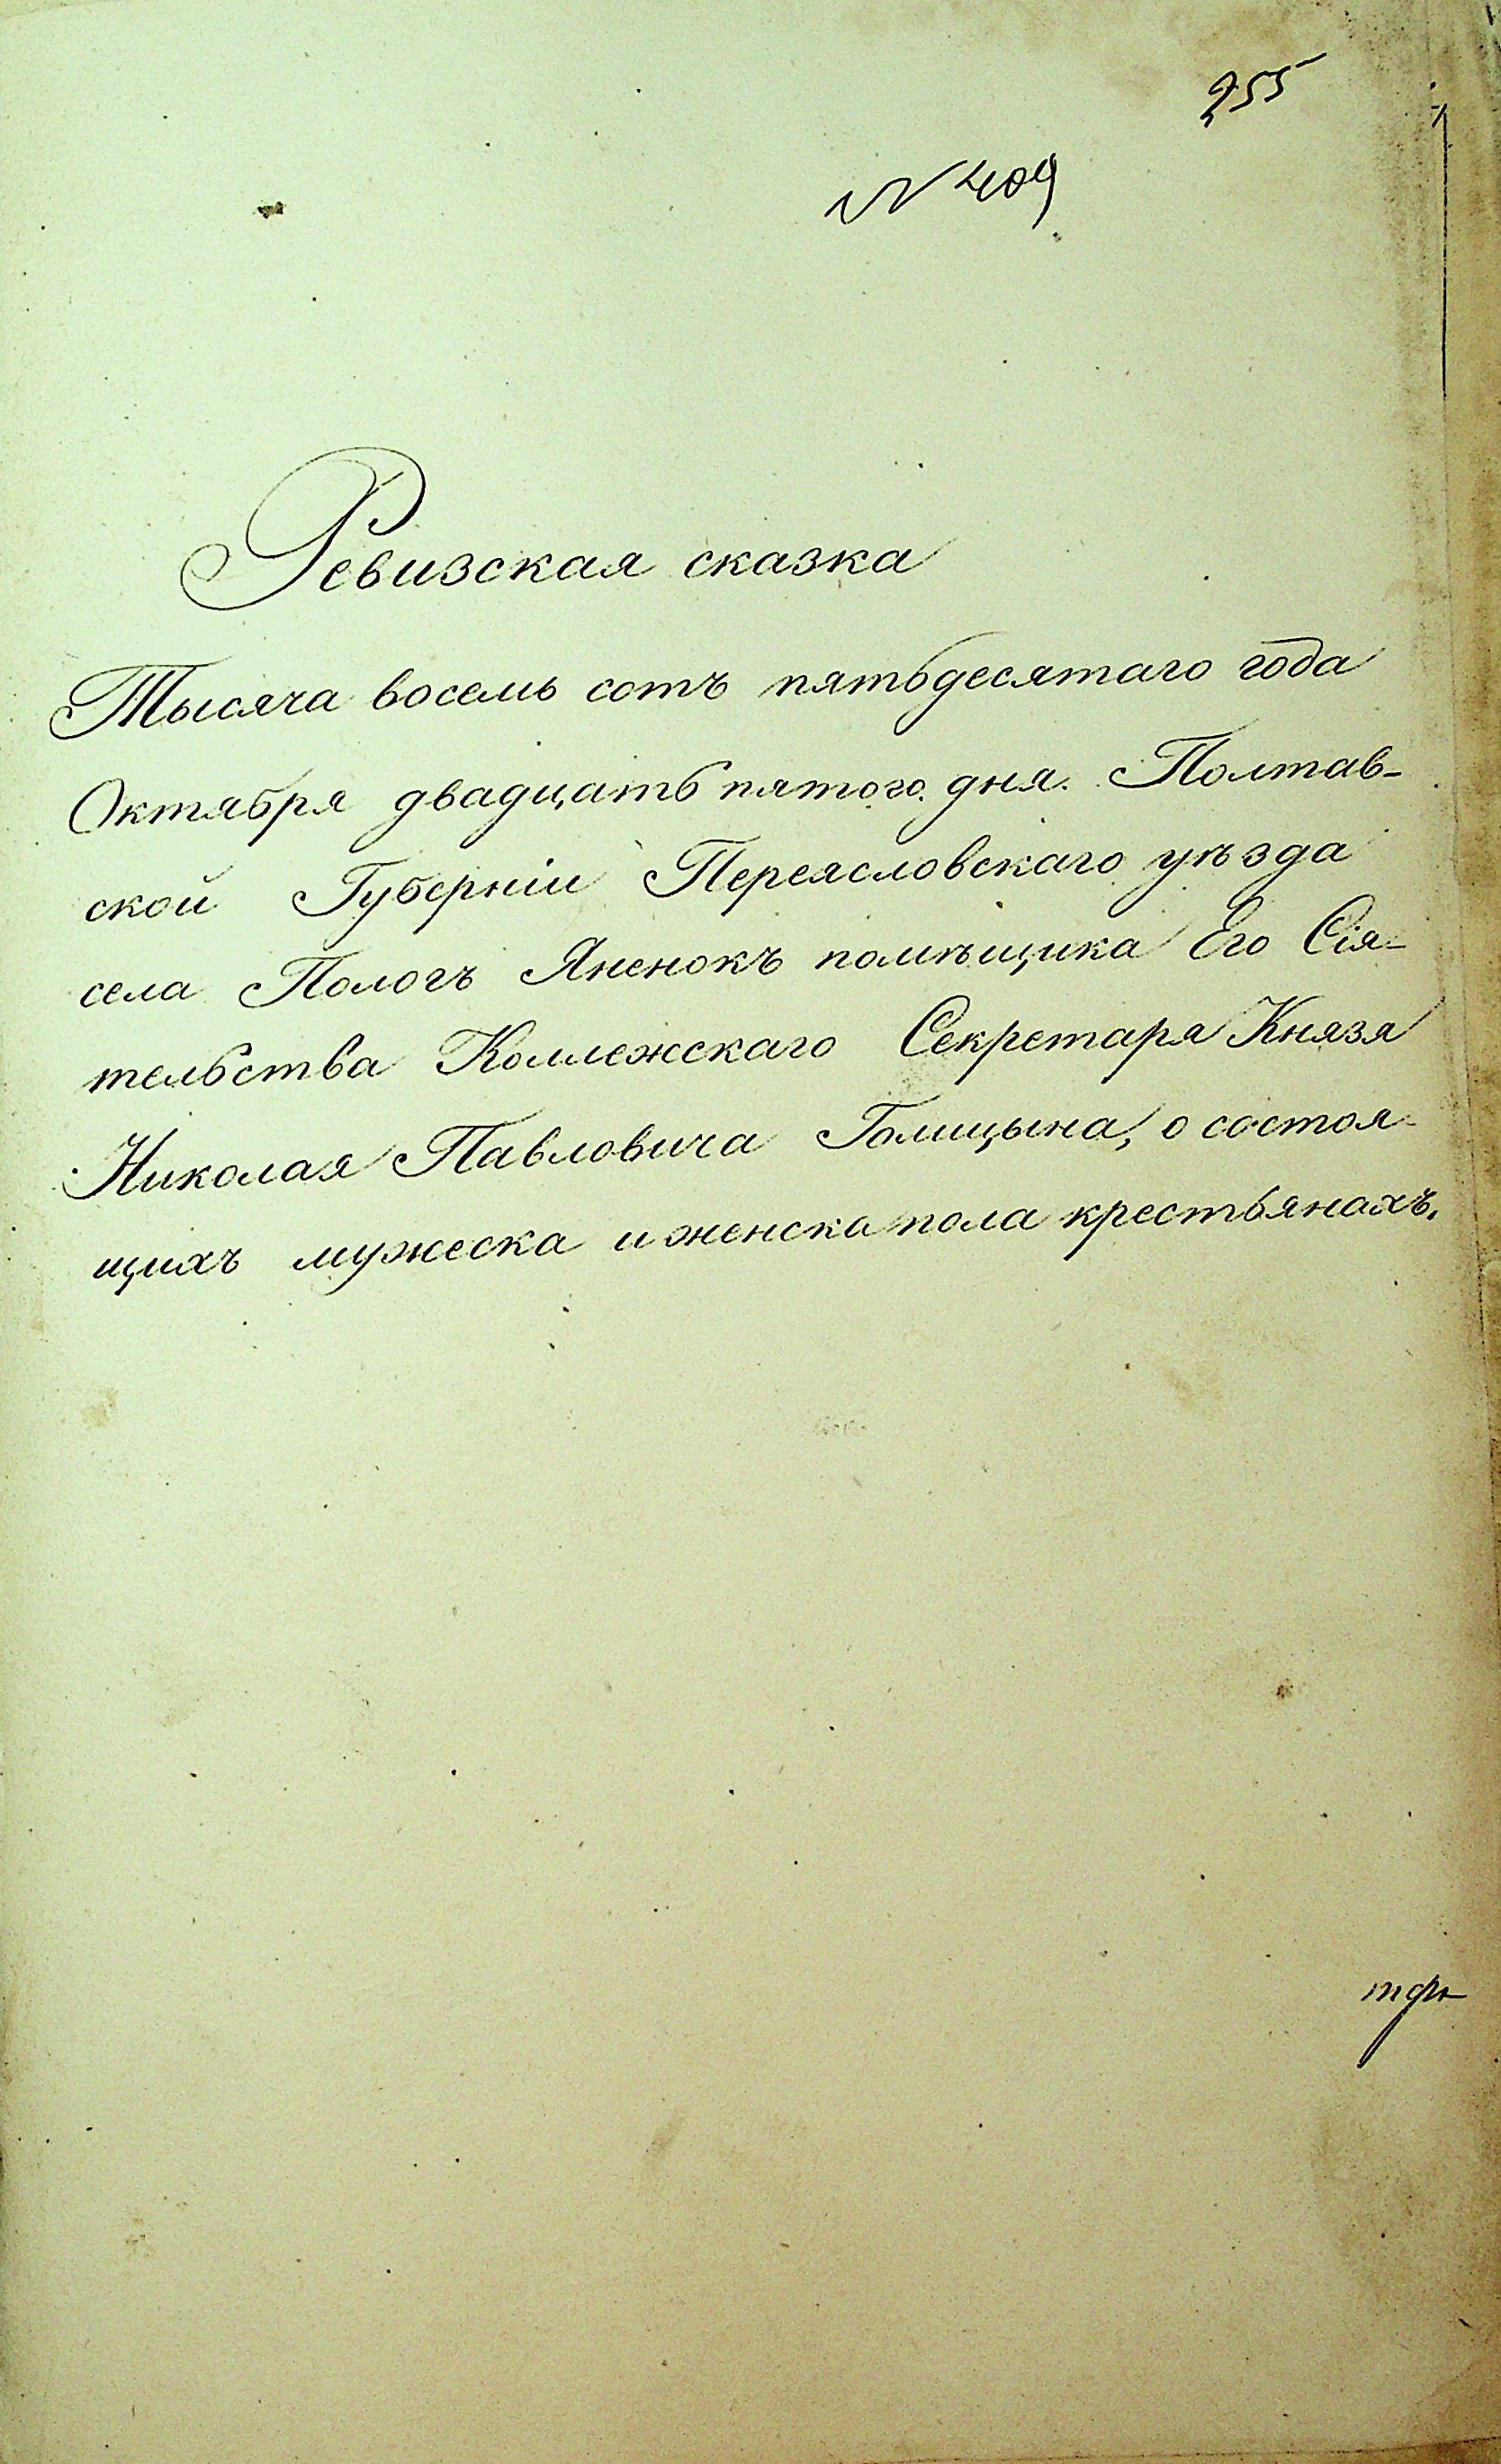 255
№ 409
Ревизская сказка
Тысяча восемь сотъ пятьдесятаго года
Октября двадцать пятого дня. Полтав-
ской Губерніи Переясловскаго уѣзда
села Пологъ Яненокъ помѣщика Его Сія-
тельства Коллежскаго Секретаря Князя
Николая Павловича Голицына, о состоя-
щихъ мужеска и женска пола крестьянахъ.